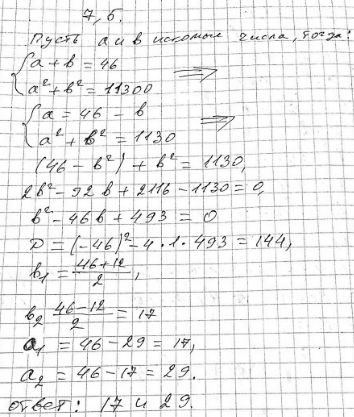 7, б.
Пусть а и в искомые числа, тогда:
{a + b = 46
a² + b² = 11300 ⟹
{a = 46 - b
a² + b² = 1130 ⟹
(46 - b²) + b² = 1130,
2b² - 92b + 2116 - 1130 = 0,
b² - 46b + 493 = 0
D = (-46)² - 4 · 1 · 493 = 144,
b₁ = (46+12)/2,
b₂ (46-12)/2 = 17
a₁ = 46 - 29 = 17,
a₂ = 46 - 17 = 29.
ответ: 17 и 29.